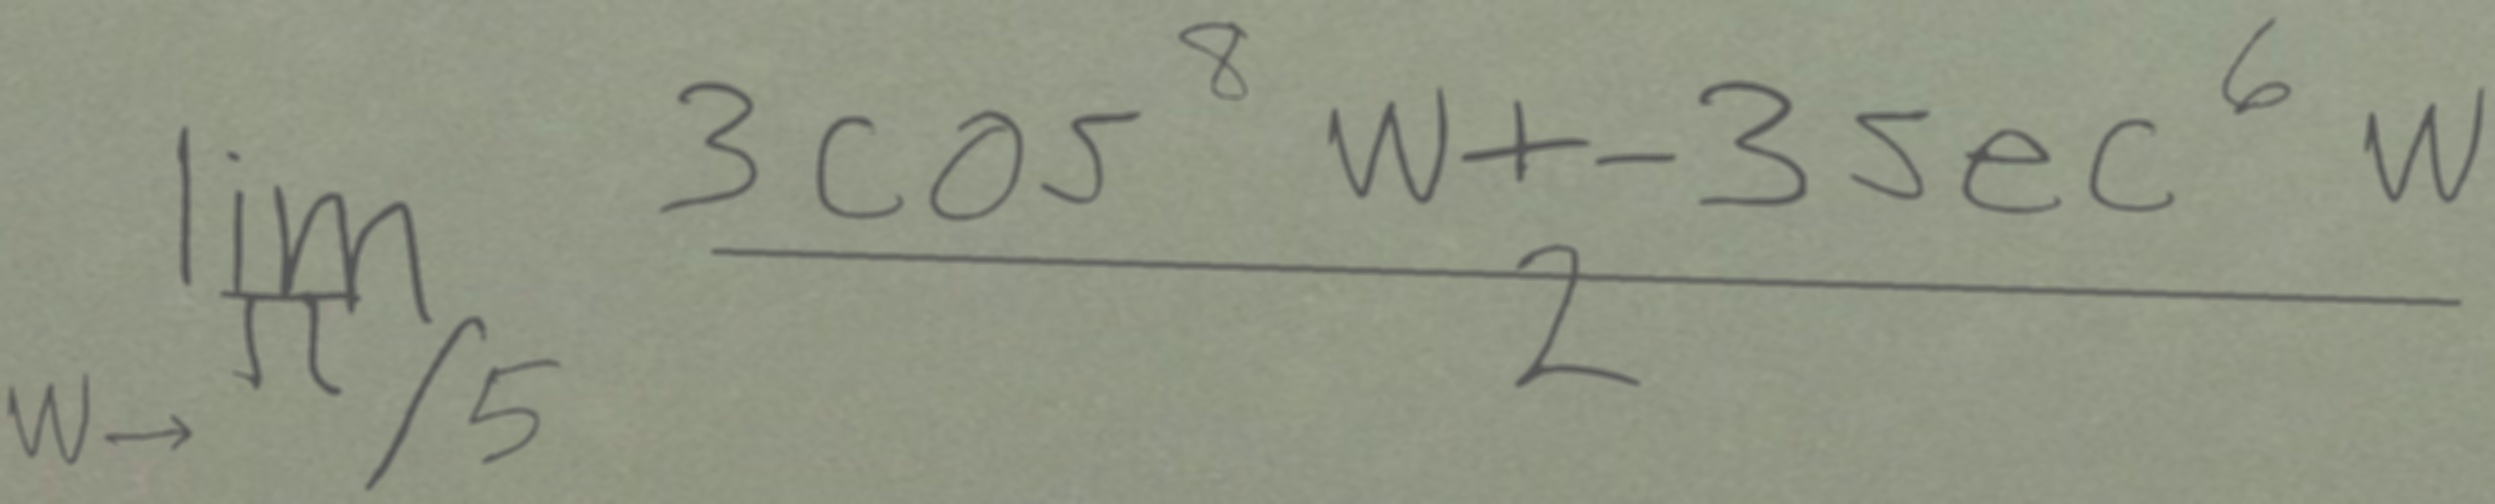 \lim_{w \to \pi/5} \frac{3\cos^8 w + -3\sec^6 w}{2}